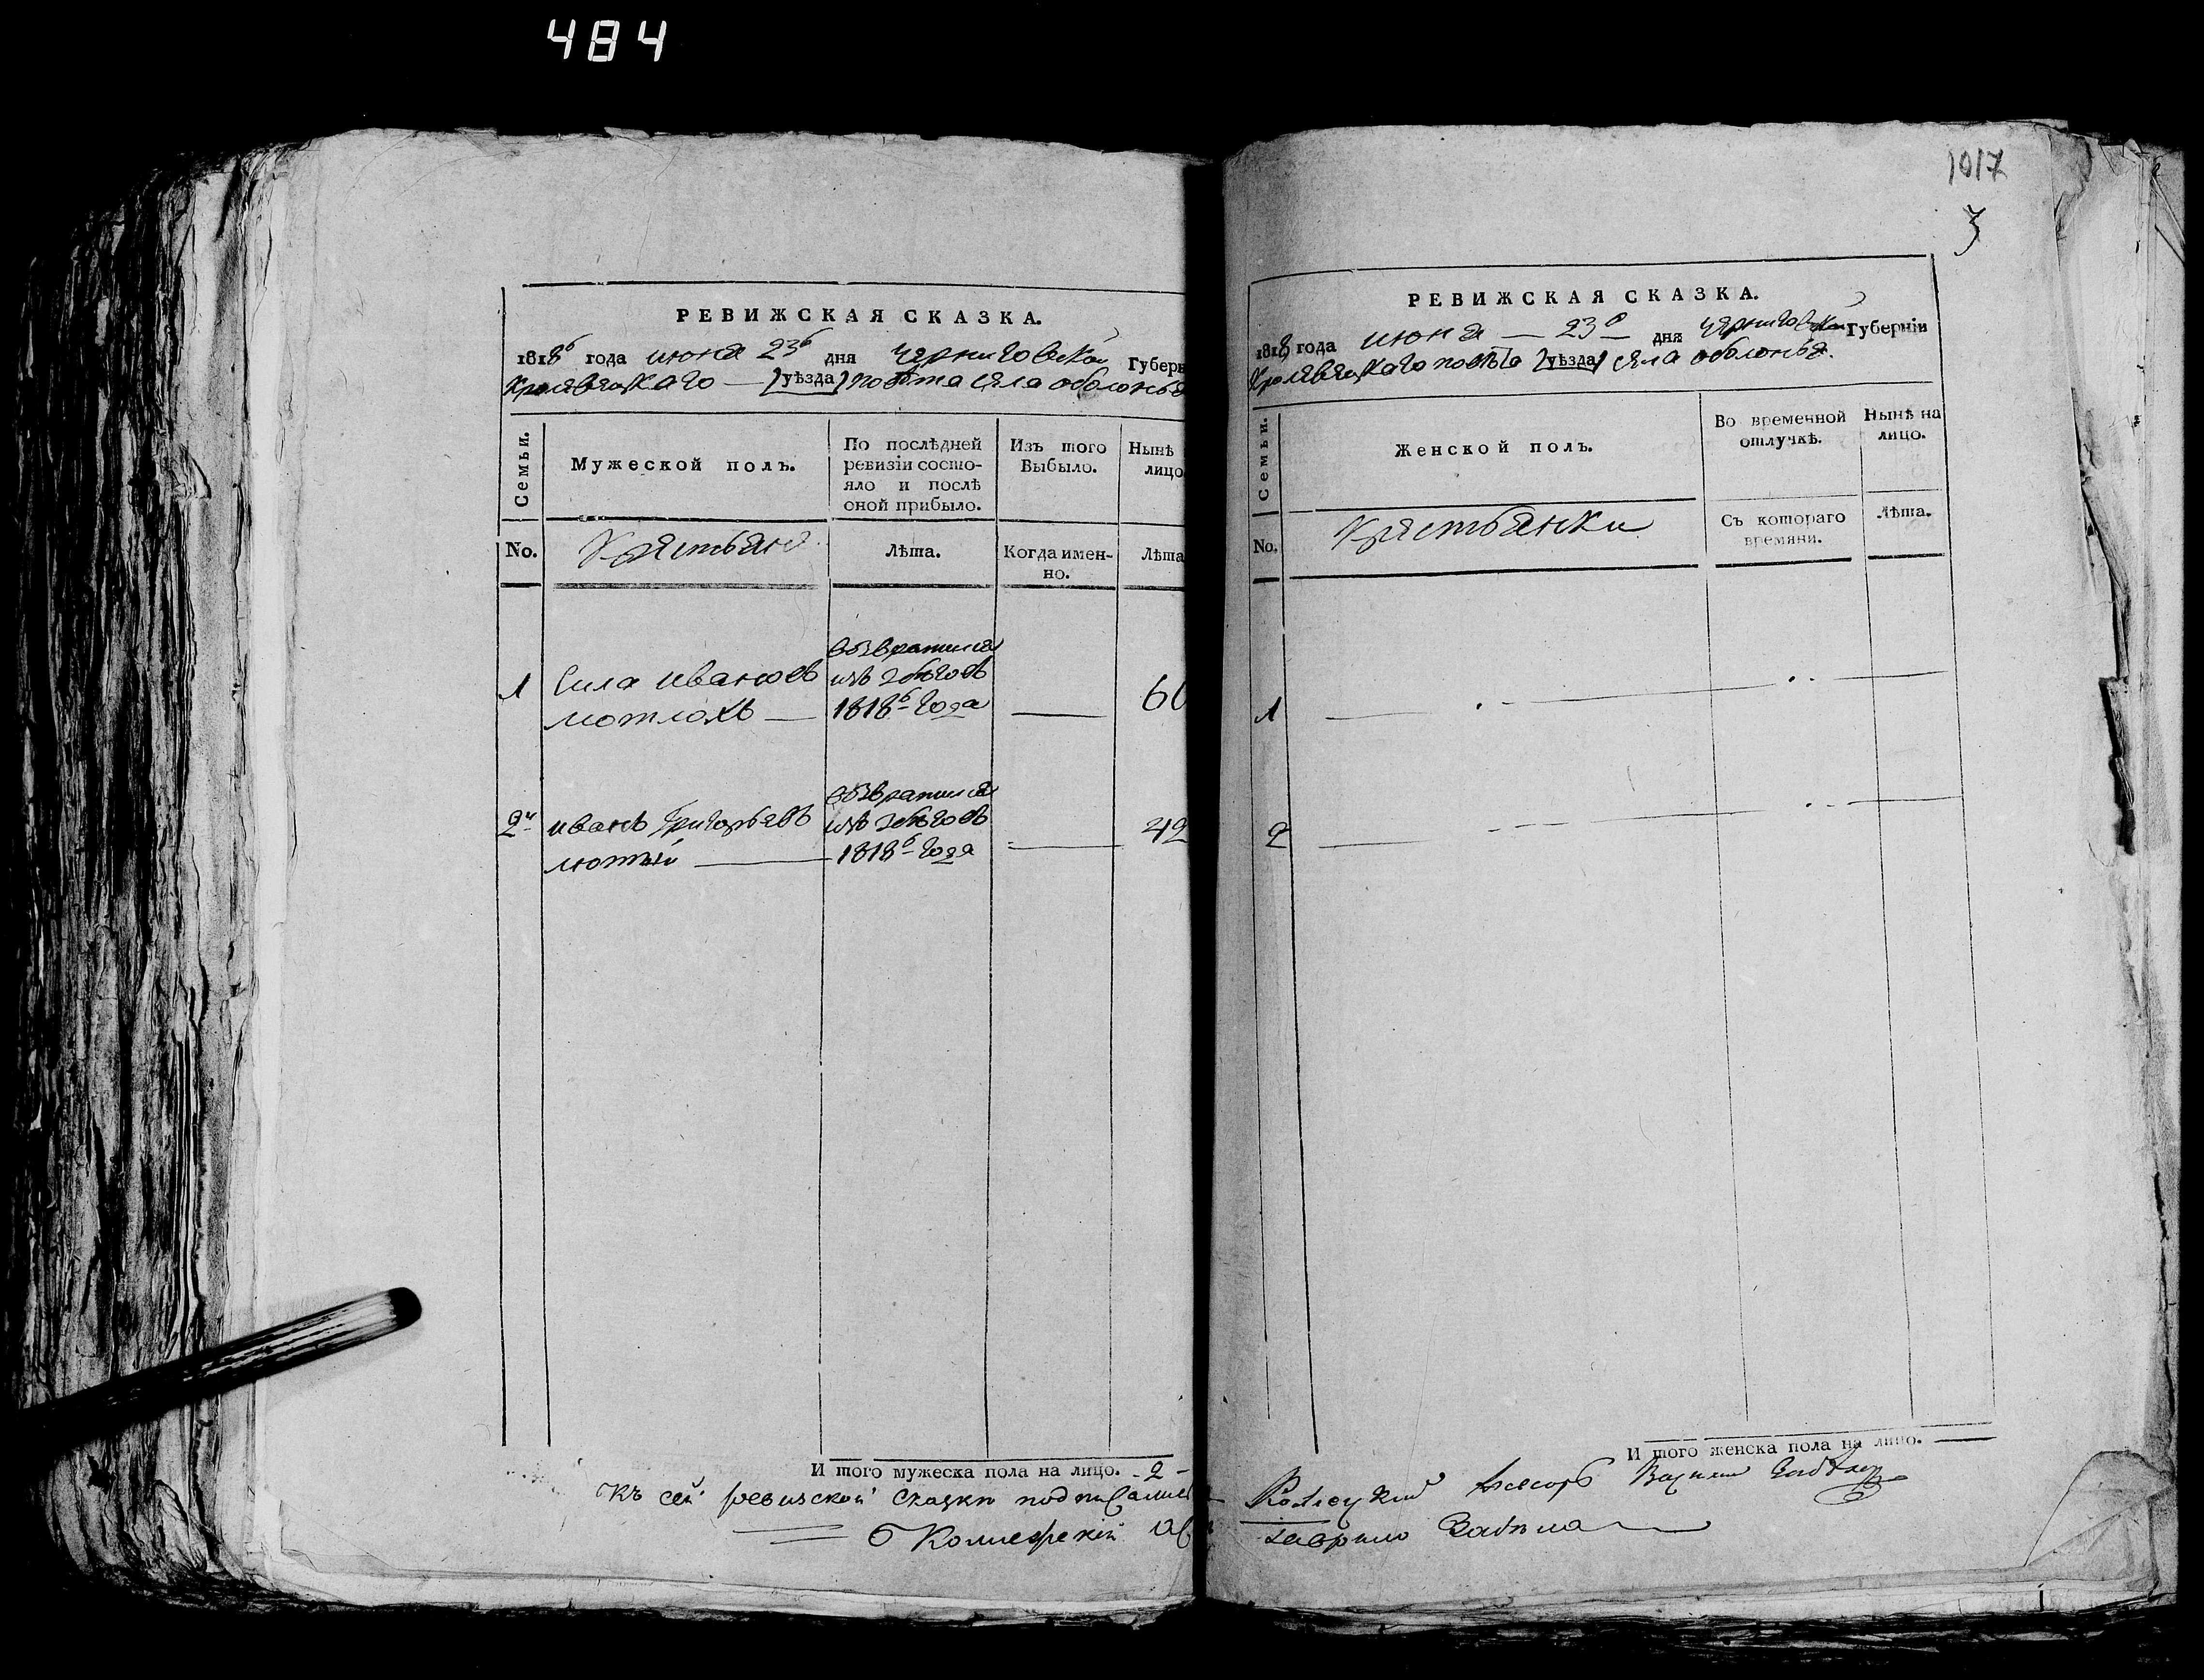 484
РЕВИЖСКАЯ СКАЗКА.
1818го года июня 23го дня Черниговской Губерн
Кролевецкаго [уѣзда] повѣта села оболонья
Семьи.
Мужеской полъ.
По послѣдней
ревизіи состо-
яло и послѣ
оной прибыло.
Изъ того
Выбыло.
Нынѣ
лицо
No.
Крестьяне
Лѣта.
Когда имен-
но.
Лѣта
1
Сила Ивановъ
мотлохъ
возвратился
изъ побѣговъ
1818го года
60
2й
иванъ Григорьевъ
лютый
возвратился
изъ побѣговъ
1818го года
42
И того мужеска пола на лицо. - 2 -
Къ сей ревизской сказки подписались
Коллежскій
1017
3
РЕВИЖСКАЯ СКАЗКА.
1818 года июня 23го дня Черниговской Губерніи
Кролевецкаго повѣта [уѣзда] села оболонья.
Семьи.
Женской полъ.
Во временной
отлучкѣ.
Нынѣ на
лицо.
No.
Крестьянки
Съ котораго
времяни.
Лѣта.
1
2
И того женска пола на лицо.
Гаврило Забѣла